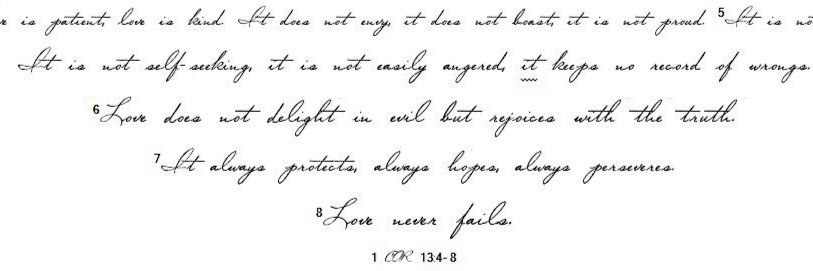 is patient, love is kind. It does not envy, it does not boast, it is not proud. 5 It is
It is not self-seeking, it is not easily angered, it keeps no record of wrongs.
6 Love does not delight in evil but rejoices with the truth.
7 It always protects, always hopes, always perseveres.
8 Love never fails.
1 COR 13:4-8